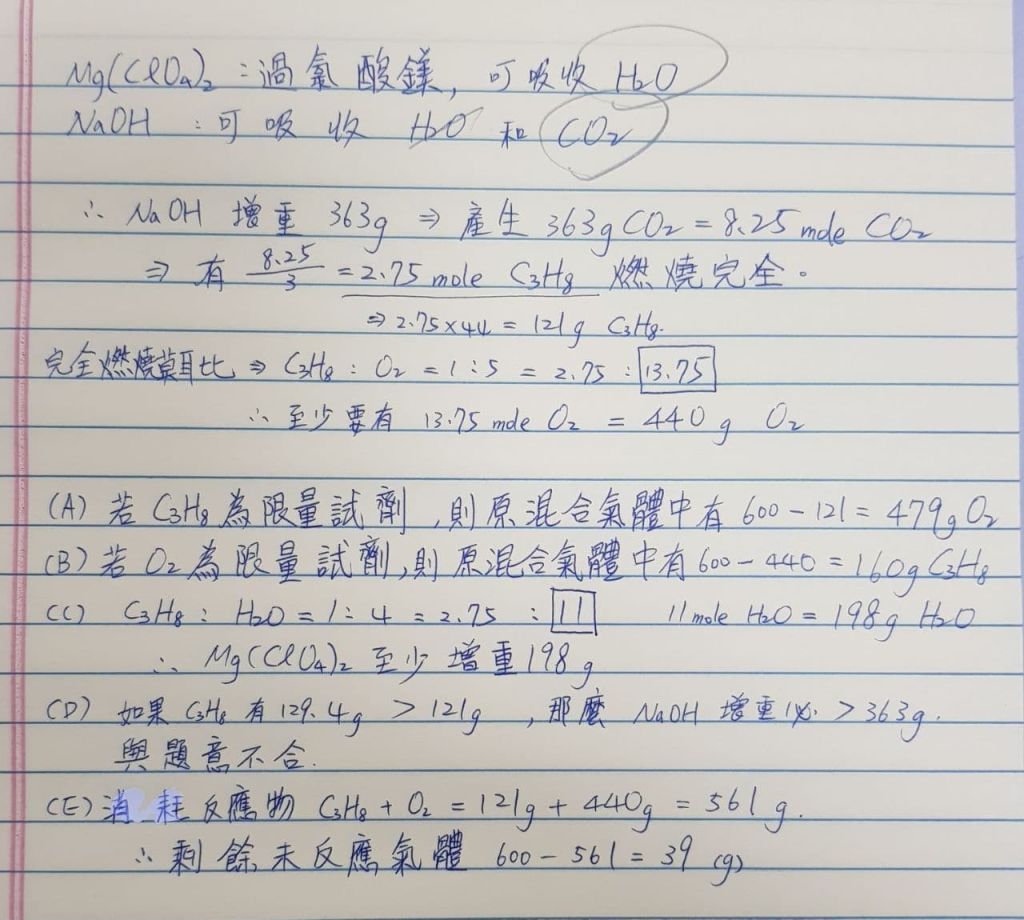 Mg(ClO₄)₂ : 過氯酸鎂, 可吸收 H₂O
NaOH : 可吸收 H₂O 和 CO₂
∴ NaOH 增重 363g ⇒ 產生 363g CO₂ = 8.25 mole CO₂
⇒ 有 8.25/3 = 2.75 mole C₃H₈ 燃燒完全。
⇒ 2.75×44 = 121g C₃H₈.
完全燃燒莫耳比 ⇒ C₃H₈ : O₂ = 1 : 5 = 2.75 : 13.75
∴ 至少要有 13.75 mole O₂ = 440 g O₂
(A) 若 C₃H₈ 為限量試劑, 則原混合氣體中有 600 - 121 = 479g O₂
(B) 若 O₂ 為限量試劑, 則原混合氣體中有 600 - 440 = 160g C₃H₈
(C) C₃H₈ : H₂O = 1 : 4 = 2.75 : 11 11 mole H₂O = 198g H₂O
∴ Mg(ClO₄)₂ 至少增重 198 g
(D) 如果 C₃H₈ 有 129.4g > 121g , 那麼 NaOH 增重 > 363g.
與題意不合.
(E) 消耗反應物 C₃H₈ + O₂ = 121g + 440g = 561 g.
∴ 剩餘未反應氣體 600 - 561 = 39 (g)